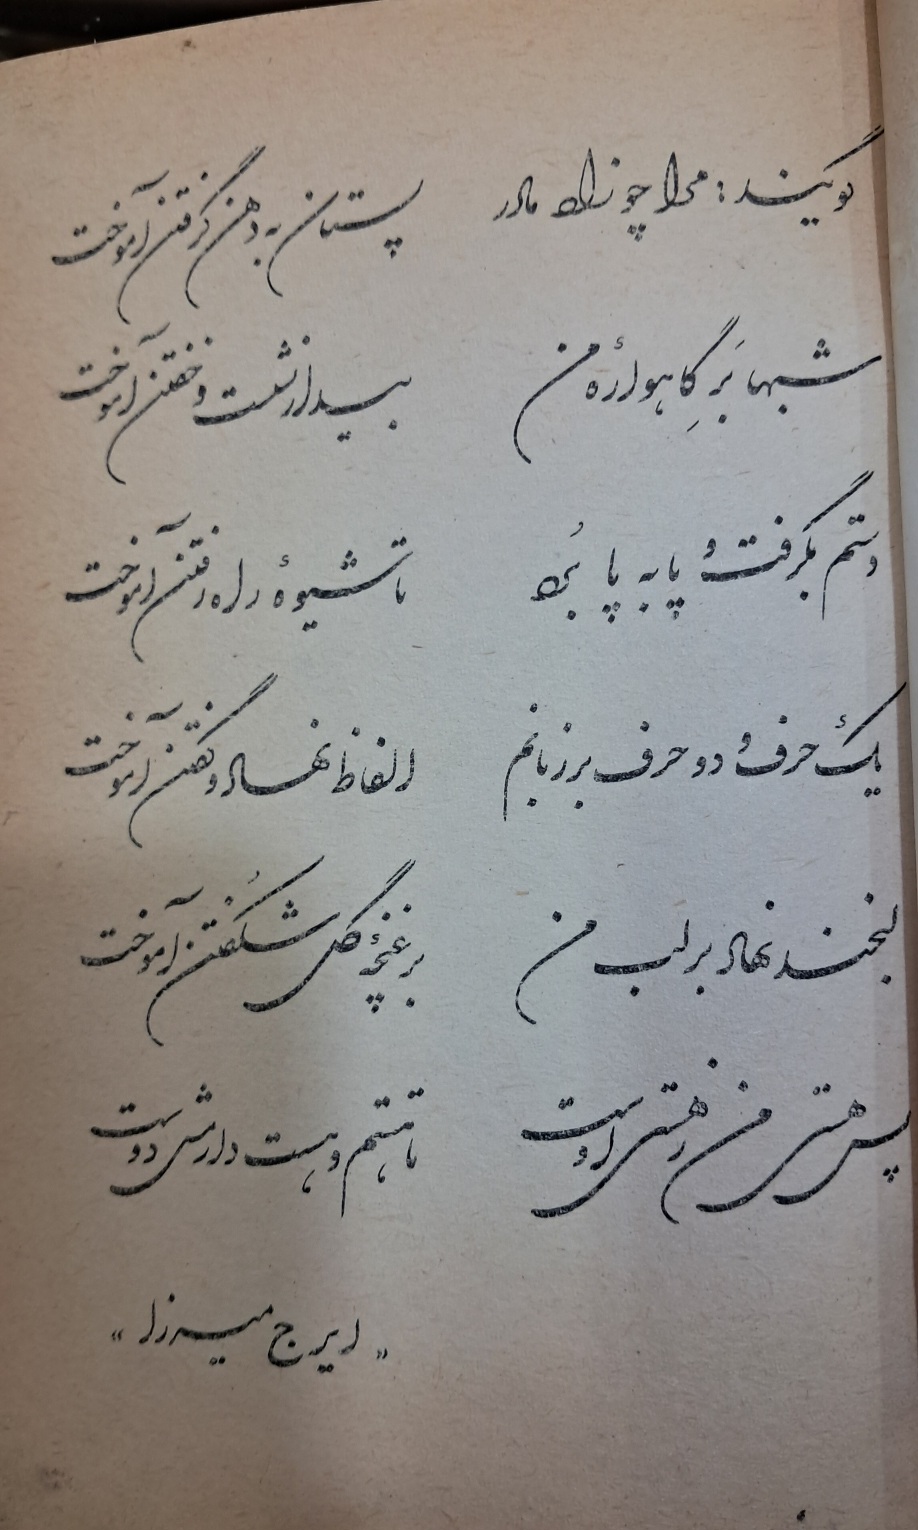 گویند: مرا چو زاد مادر پستان به دهن گرفتن آموخت
شبها بَر گاهوارهٔ من بیدار نشست و خفتن آموخت
دستم بگرفت و پا به پا بُرد تا شیوهٔ راه رفتن آموخت
یکٔ حرف و دو حرف بر زبانم الفاظ نهاد و گفتن آموخت
لبخند نهاد بر لب من بر غنچهٔ گل شکُفتن آموخت
پس هستی من ز هستی اوست تا هستم و هست دارمش دوست
«ایرج میرزا»